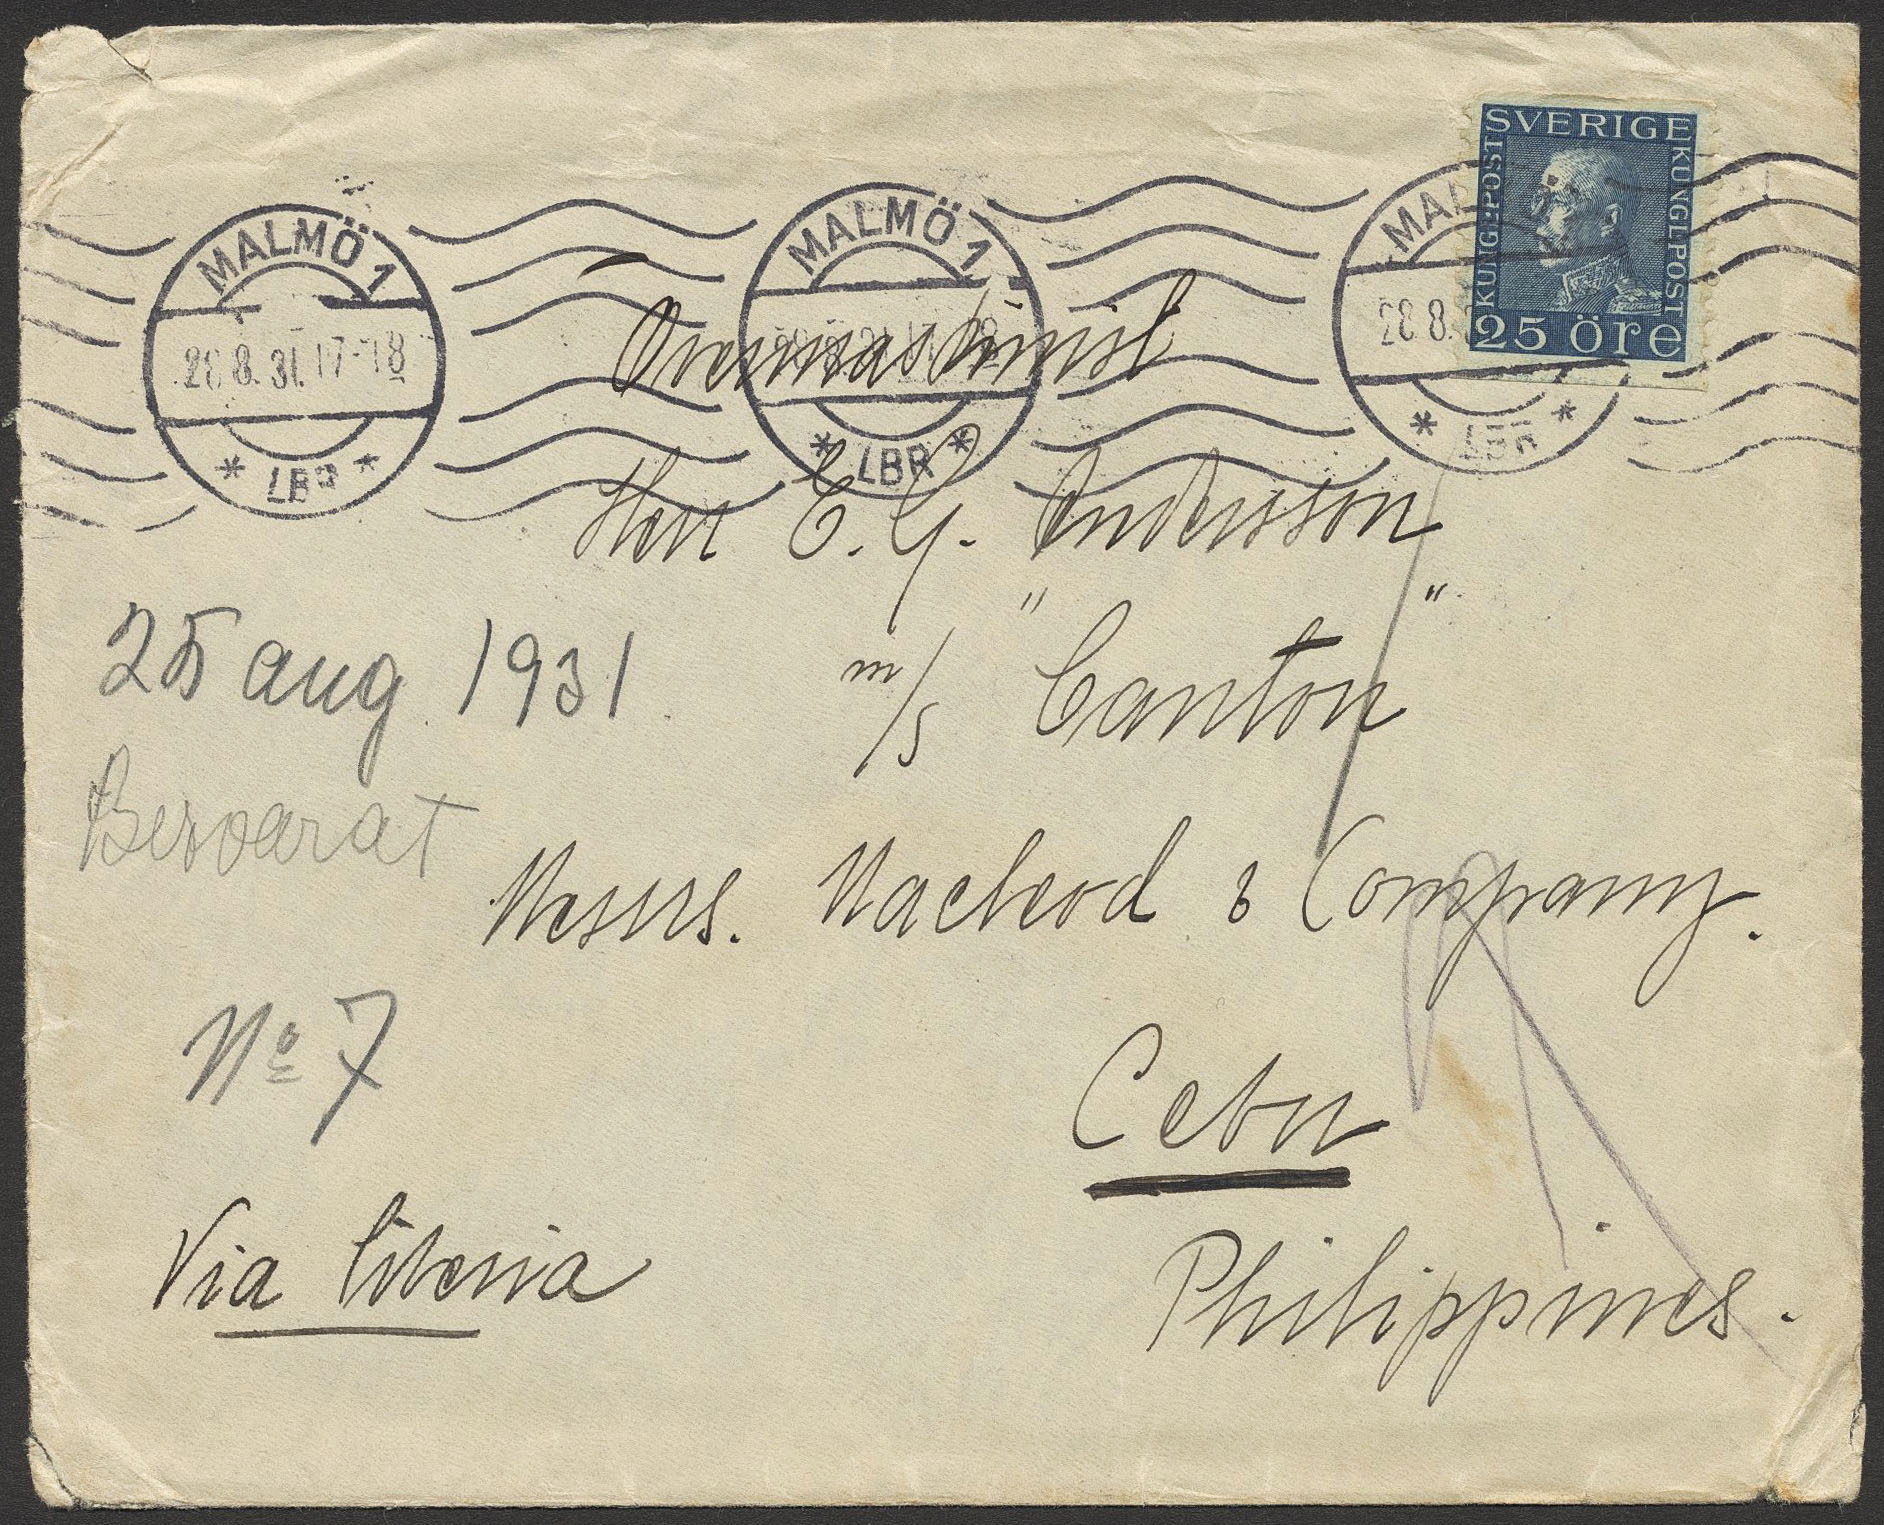 MALMÖ 1
28.8.31.17-18
* LBR *
MALMÖ 1
* LBR *
MAL
28.8.
* LBR *
SVERIGE
KUNGL.POST
KUNGL.POST
25 öre
Övermaskinist
Herr E. G. Andersson
m/s "Canton"
Messrs. Macleod & Company.
Cebu
Philippines.
25 aug. 1931
Besvarat
No 7
Via Siberia